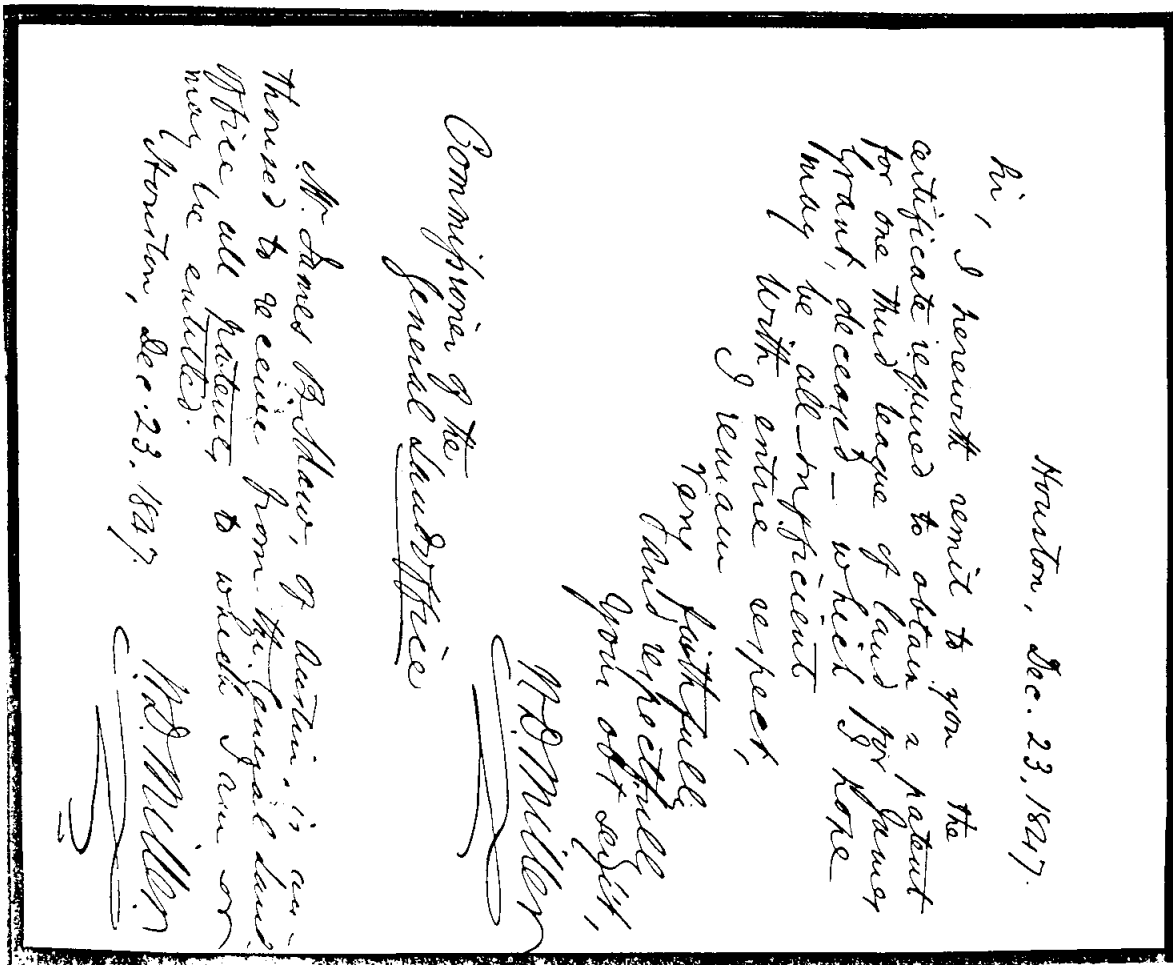 Houston, Dec. 23, 1847.
Sir, I herewith remit to you the
certificate required to obtain a patent
for one third league of land for James
Grant, deceased — which I hope
may be all-sufficient
With entire respect,
I remain
Very faithfully
and respectfully
Your obt servt,
W.D. Miller
Commissioner of the
General Land Office
Mr James B. Shaw, of Austin, is au-
thorised to receive from the General Land
Office, all patents, to which I am or
may be entitled.
Houston, Dec. 23, 1847.
W.D. Miller